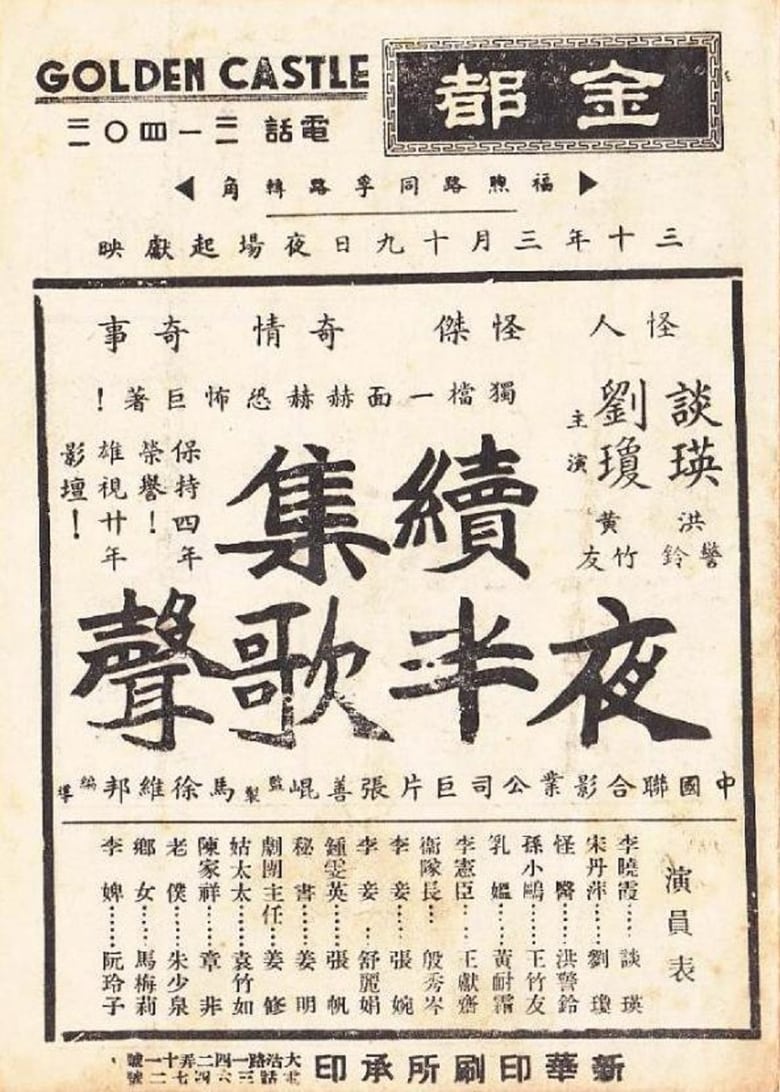 GOLDEN CASTLE
金都
電話 三一四〇三
福煦路同孚路轉角
三十年三月十九日夜場起獻映
怪人 怪傑 奇情 奇事
獨檔一面赫赫恐怖巨著!
談瑛
劉瓊
主演
洪警鈴
黃竹友
保持四年
榮譽!
雄視廿年
影壇!
續集
夜半歌聲
中國聯合影業公司巨片張善崐監製馬徐維邦編導
演員表
李曉霞……談瑛
宋丹萍……劉瓊
怪醫……洪警鈴
孫小鷗……王竹友
乳媼……黃耐霜
李憲臣……王獻齋
衞隊長…殷秀岑
李妾……張婉
李妾……舒麗娟
鍾雯英……張帆
秘書……姜明
劇團主任…姜修
姑太太……袁竹如
陳家祥……章非
老僕……朱少泉
鄉女……馬梅莉
李婢……阮玲子
新華印刷所承印
大沽路一四二弄十一號
電話三六四七二號